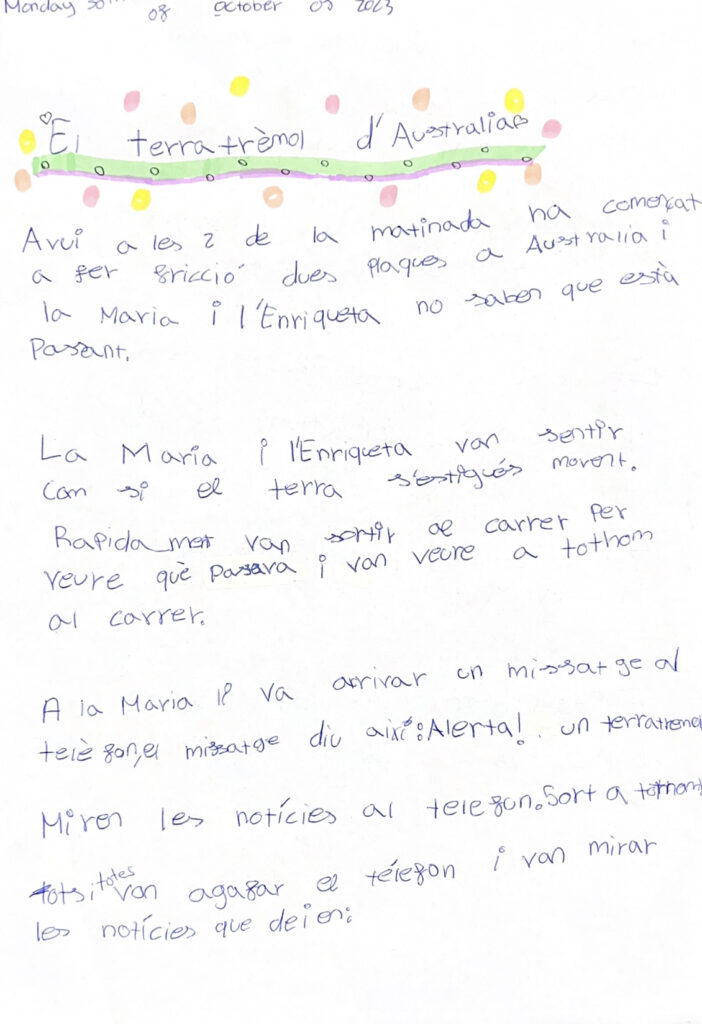 Monday 30th of October of 2023
El terratrèmol d'Australia
Avui a les 2 de la matinada ha començat
a fer fricció dues plaques a Australia i
la Maria i l'Enriqueta no saben que està
Passant.
La Maria i l'Enriqueta van sentir
Com si el terra s'estigués movent.
Rapidament van sortir al carrer per
veure què passava i van veure a tothom
al carrer.
A la Maria li va arrivar un missatge al
telèfon, el missatge diu així: Alerta! un terratremol
Miren les notícies al telefon. Sort a tothom
tots i totes van agafar el télefon i van mirar
les notícies que deien: